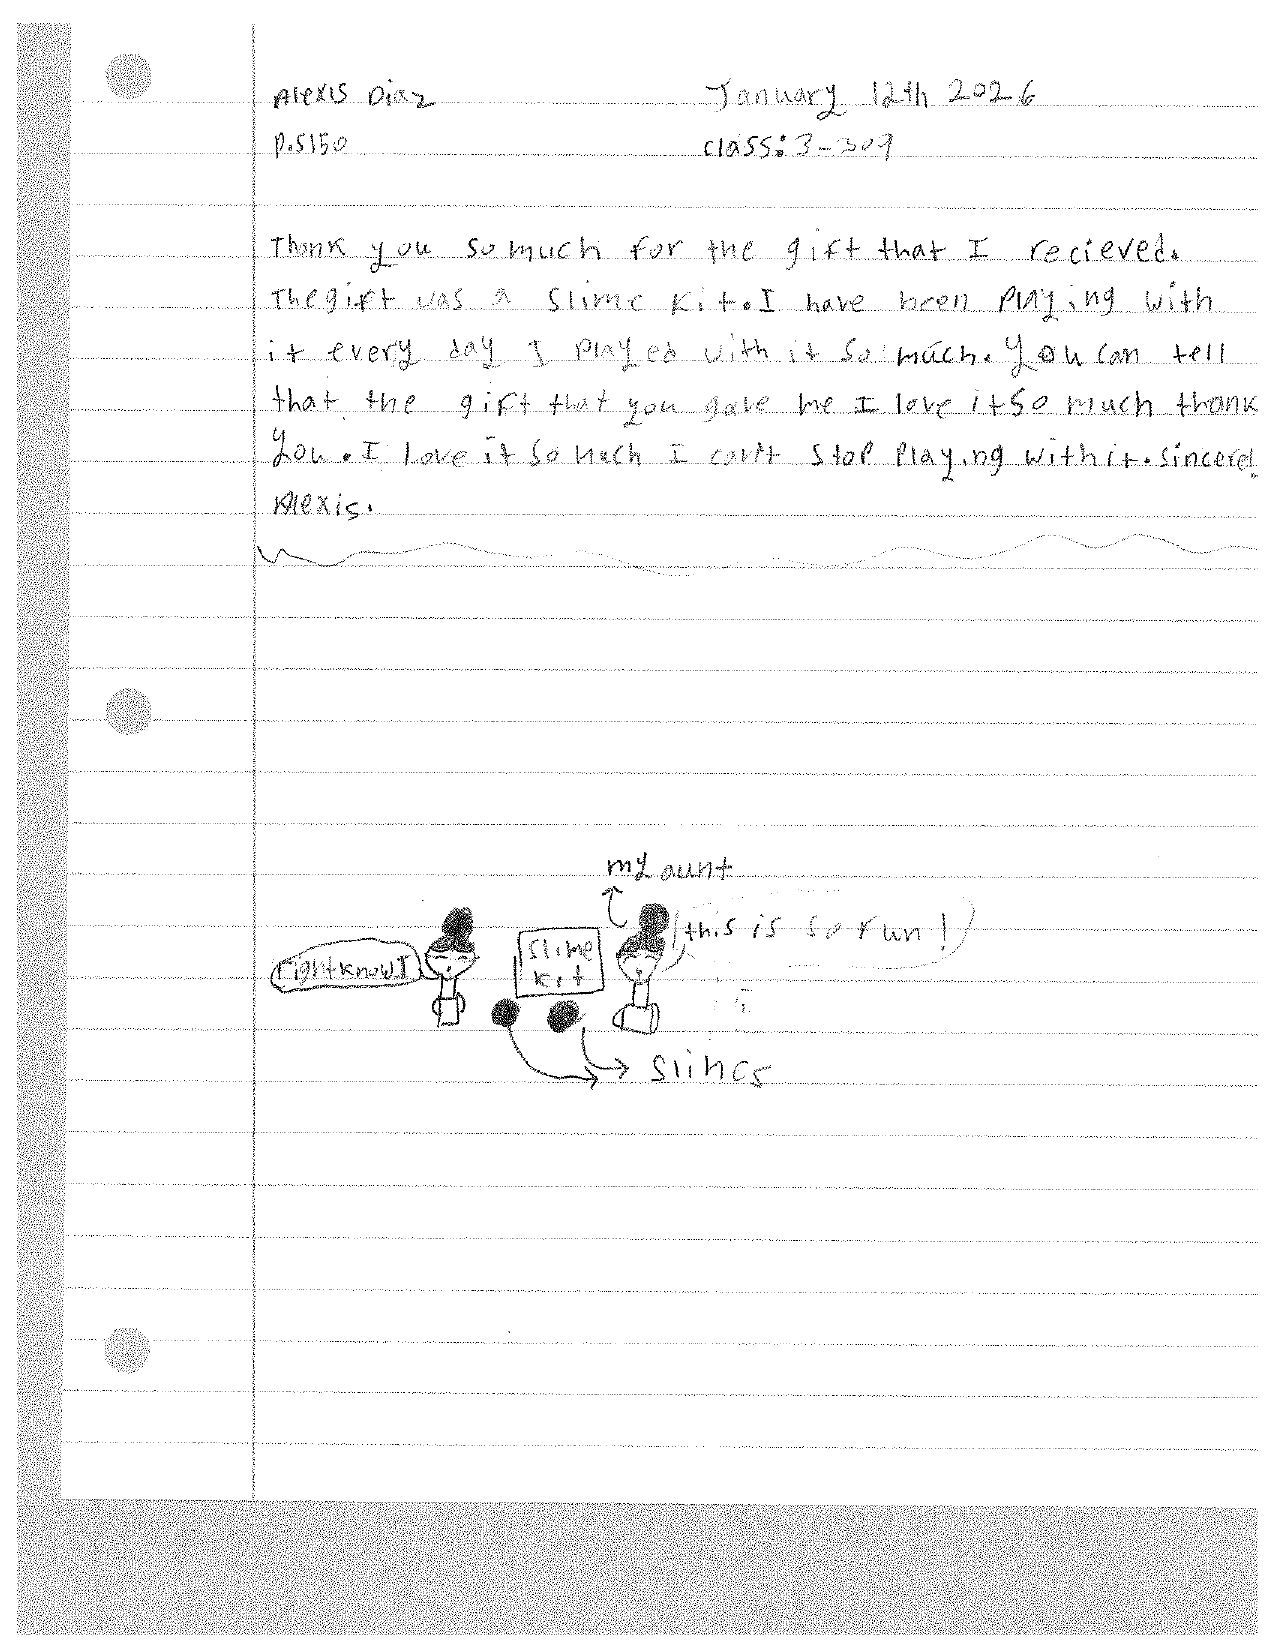 Alexis Diaz January 12th 2026
P.S150 class: 3-309
Thank you so much for the gift that I recieved.
The gift was a slime kit. I have been playing with
it every day I played with it so much. You can tell
that the gift that you gave me I love it so much thank
you. I love it so much I can't stop playing with it. Sincerel
Alexis.
my aunt
this is so fun!
slime
kit
right know I
slimes